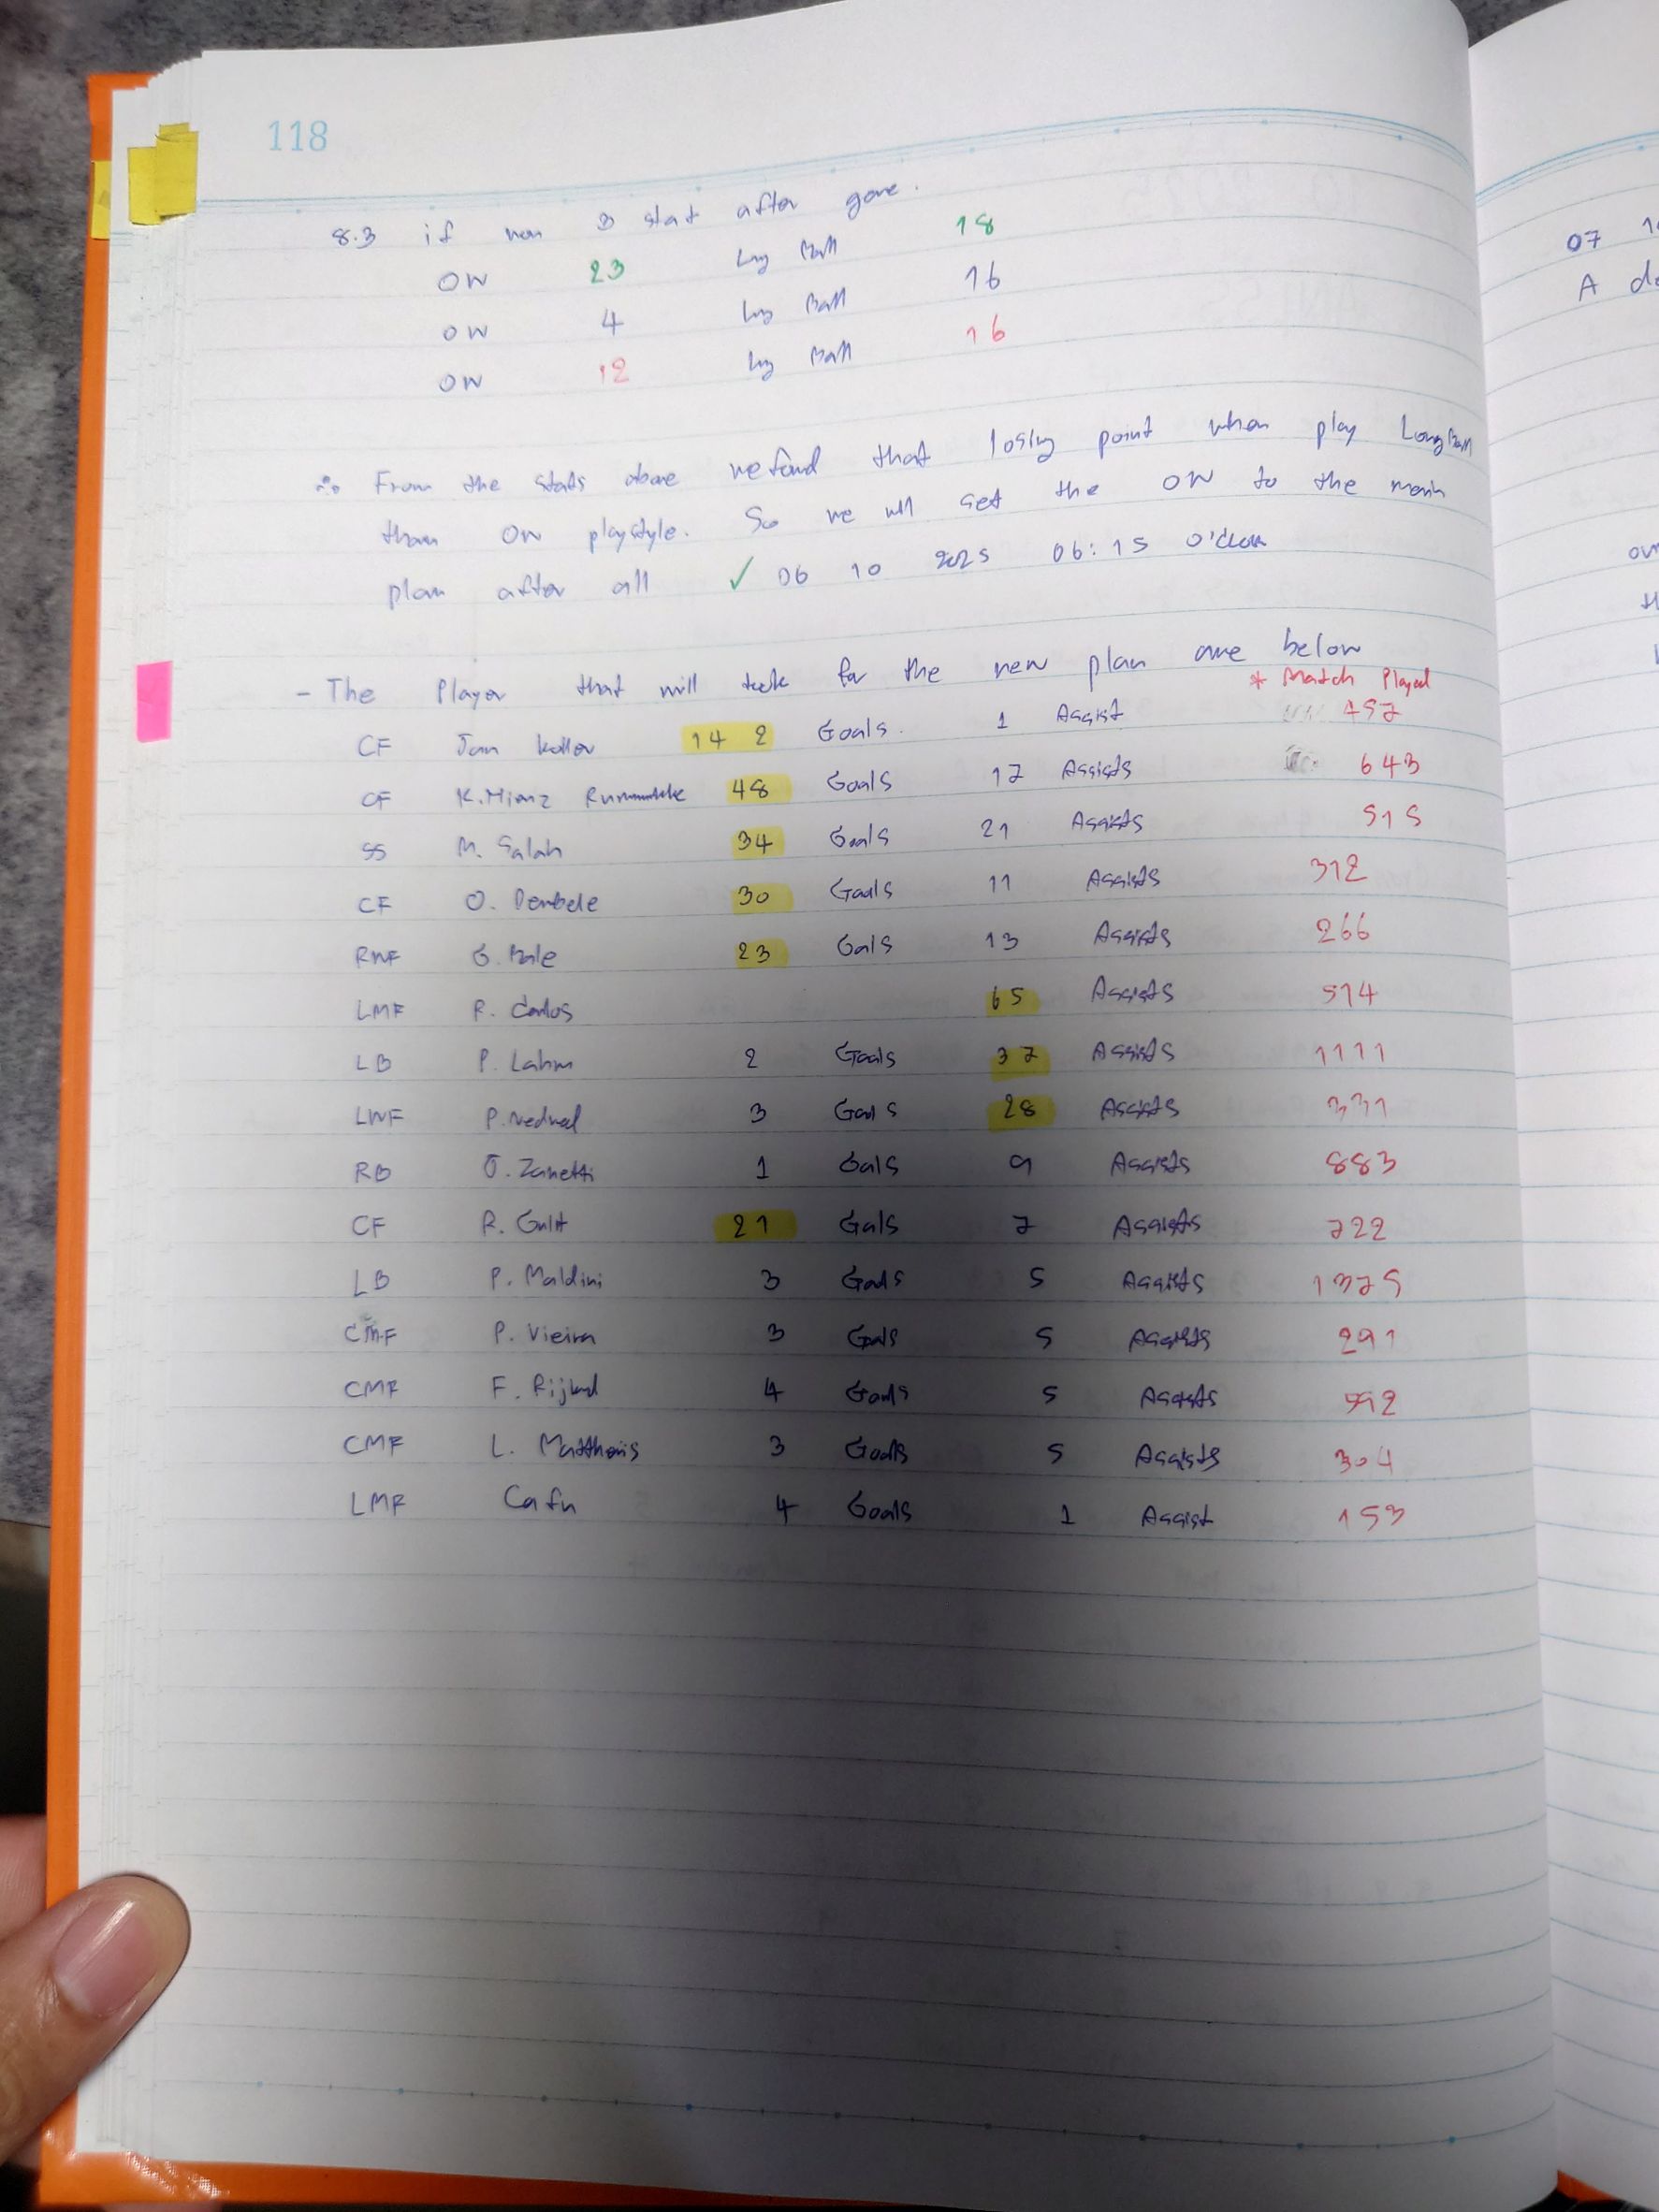 118
8.3 if non 3 stat after gone.
OW 23 Lng Ball 18
OW 4 lng Ball 16
OW 12 lng Ball 16
∴ From the stats above we found that losing point when play Long Ball
than OW playstyle. So we will set the OW to the main
plan after all ✓ 06 10 2025 06:15 o'clock
- The Player that will took for the new plan are below
* Match Played
CF Jan koller 142 Goals. 1 Assist 457
CF K.Hianz 48 Goals 17 Assists 643
SS M. Salah 34 Goals 21 Assists 515
CF O. Dembele 30 Goals 11 Assists 312
RWF G. Bale 23 Gals 13 Assists 266
LMF R. Carlos 65 Assists 514
LB P. Lahm 2 Goals 37 Assists 1111
LWF P. Nedved 3 Goals 28 Assists 331
RB J. Zanetti 1 Gals 9 Assists 883
CF R. Gullit 21 Gals 7 Assists 722
LB P. Maldini 3 Goals 5 Assists 1375
CMF P. Vieira 3 Gals 5 Assists 291
CMF F. Rijkard 4 Goals 5 Assists
CMF L. Matthaus 3 Goals 5 Assists 304
LMF Cafu 4 Goals 1 Assist 153
07
A